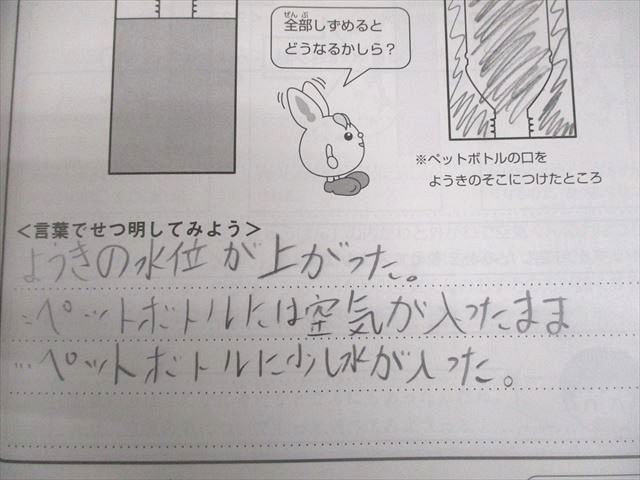 全部しずめると
どうなるかしら？
※ペットボトルの口を
ようきのそこにつけたところ
<言葉でせつ明してみよう>
ようきの水位が上がった。
ペットボトルには空気が入ったまま
ペットボトルに少し水が入った。